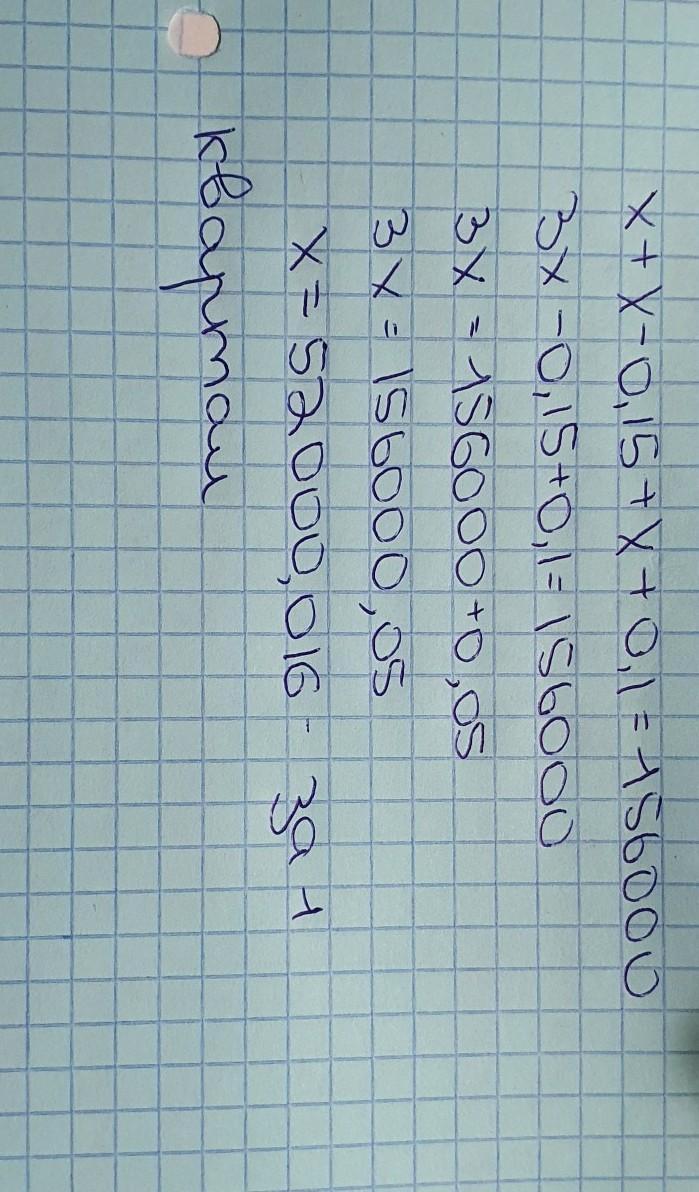 x + x - 0,15 + x + 0,1 = 156000
3x - 0,15 + 0,1 = 156000
3x = 156000 + 0,05
3x = 156000,05
x = 52000,016 - за 1
квартал